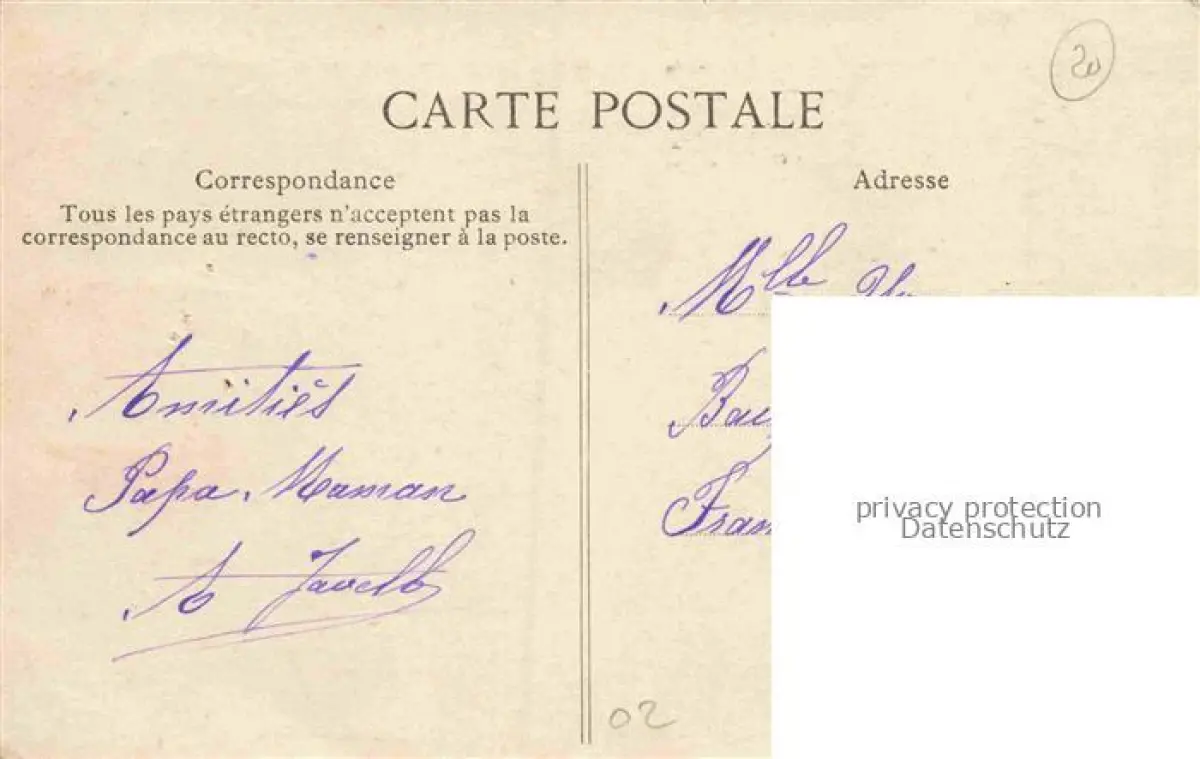 20
CARTE POSTALE
Correspondance
Tous les pays étrangers n'acceptent pas la
correspondance au recto, se renseigner à la poste.
Adresse
Amitiés
Papa. Maman
A
Mlle
privacy protection
Datenschutz
02